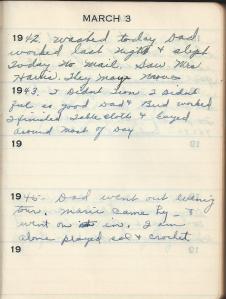 MARCH 3
1942. washed today Dad
worked last night & slept
Today No mail. Saw Mrs
They move
1943. I Didn't iron I Didn't
feel so good Dad & Bud worked
I finished Table cloth & layed
around most of Day
19
1945- Dad went out
town. Marie came by
went on in. I am
alone played sol & crochet
19